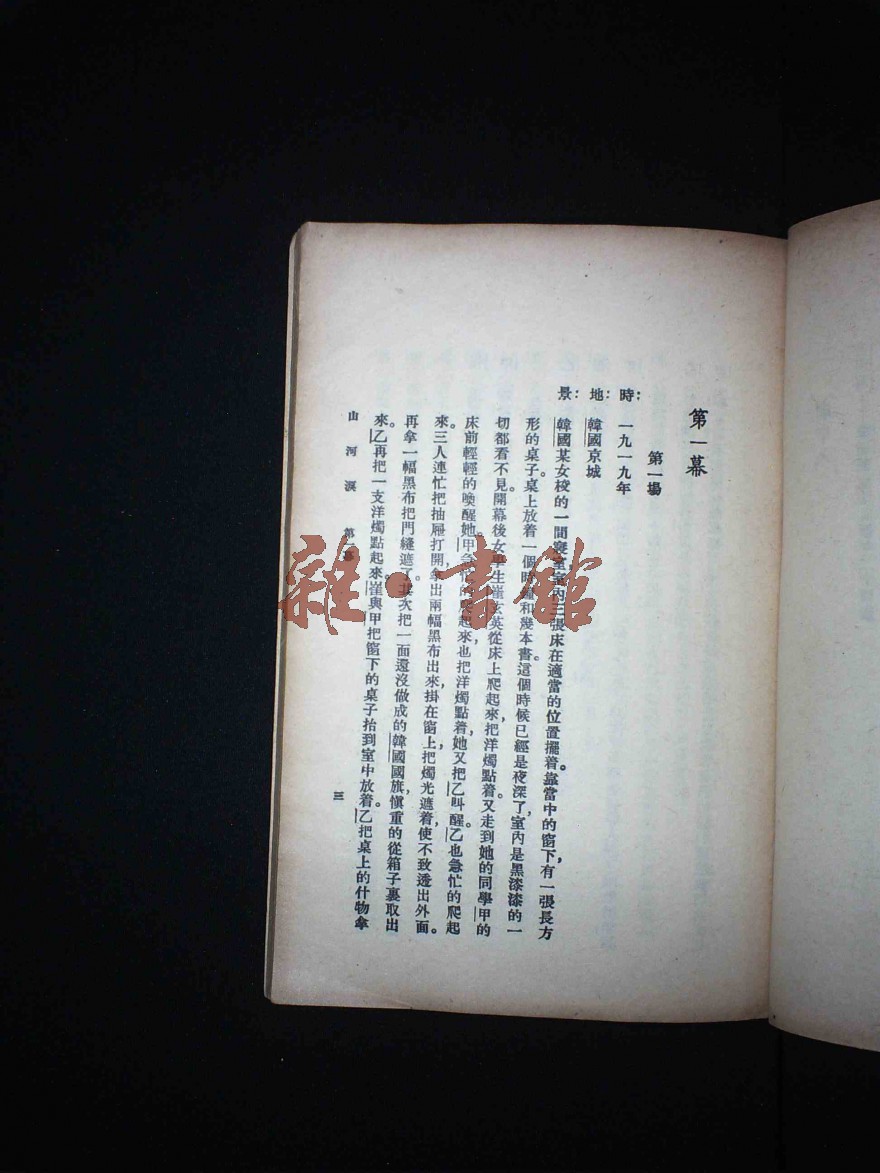 第一幕
第一場
時：一九一九年
地：韓國京城
景：韓國某女校的一間寢室室內三張床在適當的位置擺着。靠當中的窗下，有一張長方
形的桌子桌上放着一個時鐘和幾本書。這個時候已經是夜深了，室內是黑漆漆的一
切都看不見。開幕後女學生崔 英從床上爬起來，把洋燭點着。又走到她的同學甲的
床前輕輕的喚醒她，甲急忙的爬起來也把洋燭點着，她又把乙叫醒。乙也急忙的爬起
來。三人連忙把抽屜打開，拿出兩幅黑布出來，掛在窗上，把燭光遮着，使不致透出外面。
再拿一幅黑布把門縫遮了。其次把一面還沒做成的韓國國旗，愼重的從箱子裏取出
來。乙再把一支洋燭點起來，崔與甲把窗下的桌子抬到室中放着。乙把桌上的什物拿
山河淚 第一幕
三
雜·書館